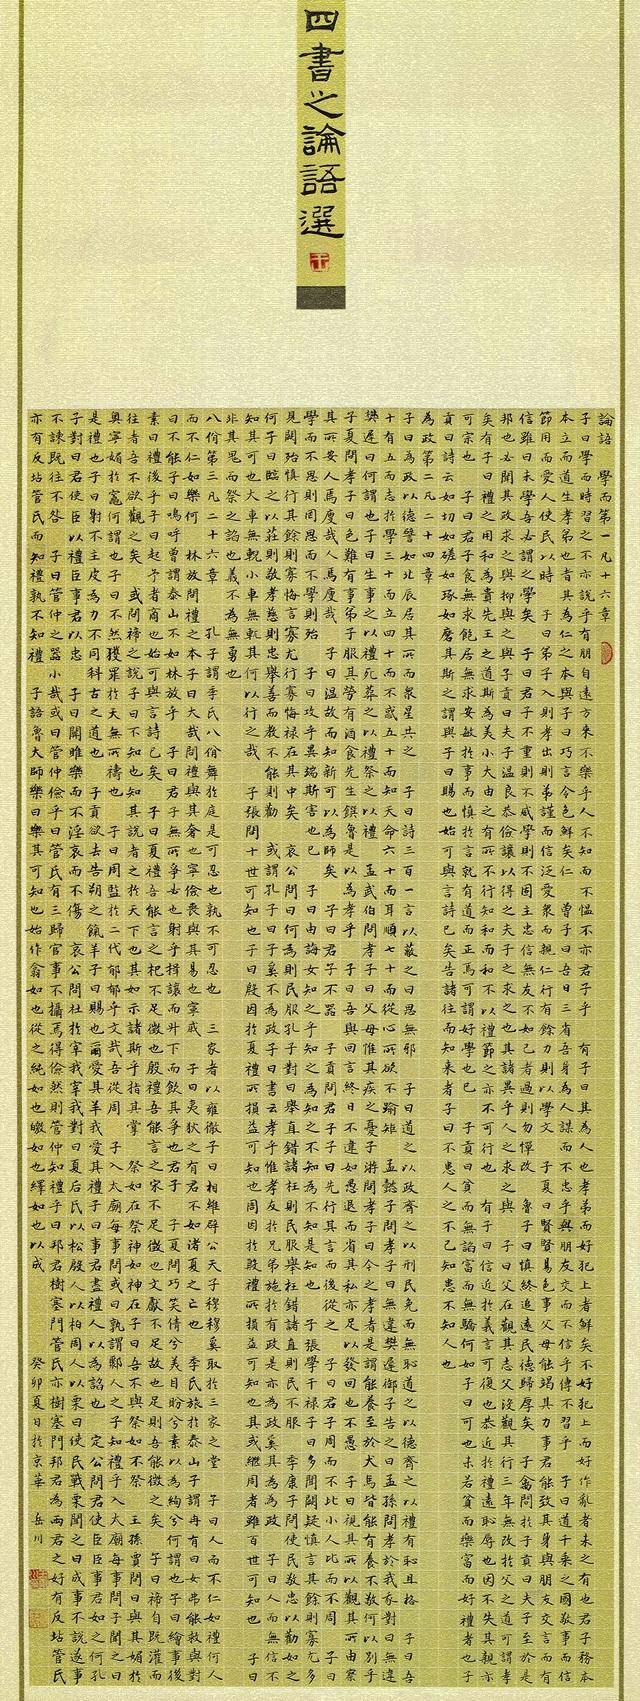 四書之論語選
論語 學而第一凡十六章
子曰學而時習之不亦說乎有朋自遠方來不樂乎人不知而不慍不亦君子乎 有子曰其為人也孝弟而好犯上者鮮矣不好犯上而好作亂者未之有也君子務本
本立而道生孝弟也者其為仁之本與子曰巧言令色鮮矣仁 曾子曰吾日三省吾身為人謀而不忠乎與朋友交而不信乎傳不習乎 子曰道千乘之國敬事而信
節用而愛人使民以時 子曰弟子入則孝出則弟謹而信泛愛眾而親仁行有餘力則以學文 子夏曰賢賢易色事父母能竭其力事君能致其身與朋友交言而有
信雖曰未學吾必謂之學矣 子曰君子不重則不威學則不固主忠信無友不如己者過則勿憚改 曾子曰慎終追遠民德歸厚矣 子禽問於子貢曰夫子至於是
邦也必聞其政求之與抑與之與子貢曰夫子溫良恭儉讓以得之夫子之求之也其諸異乎人之求之與 子曰父在觀其志父沒觀其行三年無改於父之道可謂孝
矣有子曰禮之用和為貴先王之道斯為美小大由之有所不行知和而和不以禮節之亦不可行也 有子曰信近於義言可復也恭近於禮遠恥辱也因不失其親亦
可宗也 子曰君子食無求飽居無求安敏於事而慎於言就有道而正焉可謂好學也已 子貢曰貧而無諂富而無驕何如子曰可也未若貧而樂富而好禮者也子
貢曰詩云如切如磋如琢如磨其斯之謂與子曰賜也始可與言詩已矣告諸往而知來者子曰不患人之不己知患不知人也
為政第二凡二十四章
子曰為政以德譬如北辰居其所而眾星共之 子曰詩三百一言以蔽之曰思無邪 子曰道之以政齊之以刑民免而無恥道之以德齊之以禮有恥且格 子曰吾
十有五而志於學三十而立四十而不惑五十而知天命六十而耳順七十而從心所欲不踰矩 孟懿子問孝子曰無違樊遲御子告之曰孟孫問孝於我我對曰無違
樊遲曰何謂也子曰生事之以禮死葬之以禮祭之以禮 孟武伯問孝子曰父母惟其疾之憂子游問孝子曰今之孝者是謂能養至於犬馬皆能有養不敬何以別乎
子夏問孝子曰色難有事弟子服其勞有酒食先生饌曾是以為孝乎 子曰吾與回言終日不違如愚退而省其私亦足以發回也不愚 子曰視其所以觀其所由察
其所安人焉廋哉人焉廋哉 子曰溫故而知新可以為師矣 子曰君子不器 子貢問君子子曰先行其言而後從之 子曰君子周而不比小人比而不周 子曰
學而不思則罔思而不學則殆 子曰攻乎異端斯害也已 子曰由誨女知之乎知之為知之不知為不知是知也 子張學干祿子曰多聞闕疑慎言其餘則寡尤多
見闕殆慎行其餘則寡悔言寡尤行寡悔祿在其中矣 哀公問曰何為則民服孔子對曰舉直錯諸枉則民服舉枉錯諸直則民不服 季康子問使民敬忠以勸如之
何子曰臨之以莊則敬孝慈則忠舉善而教不能則勸 或謂孔子曰子奚不為政子曰書云孝乎惟孝友於兄弟施於有政是亦為政奚其為為政 子曰人而無信不
知其可也大車無輗小車無軏其何以行之哉 子張問十世可知也子曰殷因於夏禮所損益可知也周因於殷禮所損益可知也其或繼周者雖百世可知也 子曰
非其鬼而祭之諂也義不為無勇也
八佾第三凡二十六章 孔子謂季氏八佾舞於庭是可忍也孰不可忍也 三家者以雍徹子曰相維辟公天子穆穆奚取於三家之堂 子曰人而不仁如禮何人
而不仁如樂何 林放問禮之本子曰大哉問禮與其奢也寧儉喪與其易也寧戚 子曰夷狄之有君不如諸夏之亡也 季氏旅於泰山子謂冉有曰女弗能救與對
曰不能子曰嗚呼曾謂泰山不如林放乎 子曰君子無所爭必也射乎揖讓而升下而飲其爭也君子 子夏問巧笑倩兮美目盼兮素以為絢兮何謂也子曰繪事後
素曰禮後乎子曰起予者商也始可與言詩已矣 子曰夏禮吾能言之杞不足徵也殷禮吾能言之宋不足徵也文獻不足故也足則吾能徵之矣 子曰禘自既灌而
往者吾不欲觀之矣 或問禘之說子曰不知也知其說者之於天下也其如示諸斯乎指其掌 祭如在祭神如神在子曰吾不與祭如不祭 王孫賈問曰與其媚於
奧寧媚於竈何謂也子曰不然獲罪於天無所禱也 子曰周監於二代郁郁乎文哉吾從周 子入太廟每事問或曰孰謂鄹人之子知禮乎入太廟每事問子聞之曰
是禮也子曰射不主皮為力不同科古之道也 子貢欲去告朔之餼羊子曰賜也爾愛其羊我愛其禮子曰事君盡禮人以為諂也 定公問君使臣臣事君如之何孔
子對曰君使臣以禮臣事君以忠 子曰關雎樂而不淫哀而不傷 哀公問社於宰我宰我對曰夏后氏以松殷人以柏周人以栗曰使民戰栗子聞之曰成事不說遂事
不諫既往不咎 子曰管仲之器小哉或曰管仲儉乎曰管氏有三歸官事不攝焉得儉然則管仲知禮乎曰邦君樹塞門管氏亦樹塞門邦君為兩君之好有反坫管氏
亦有反坫管氏而知禮孰不知禮 子語魯大師樂曰樂其可知也始作翕如也從之純如也皦如也繹如也以成 癸卯夏日於京華 岳川